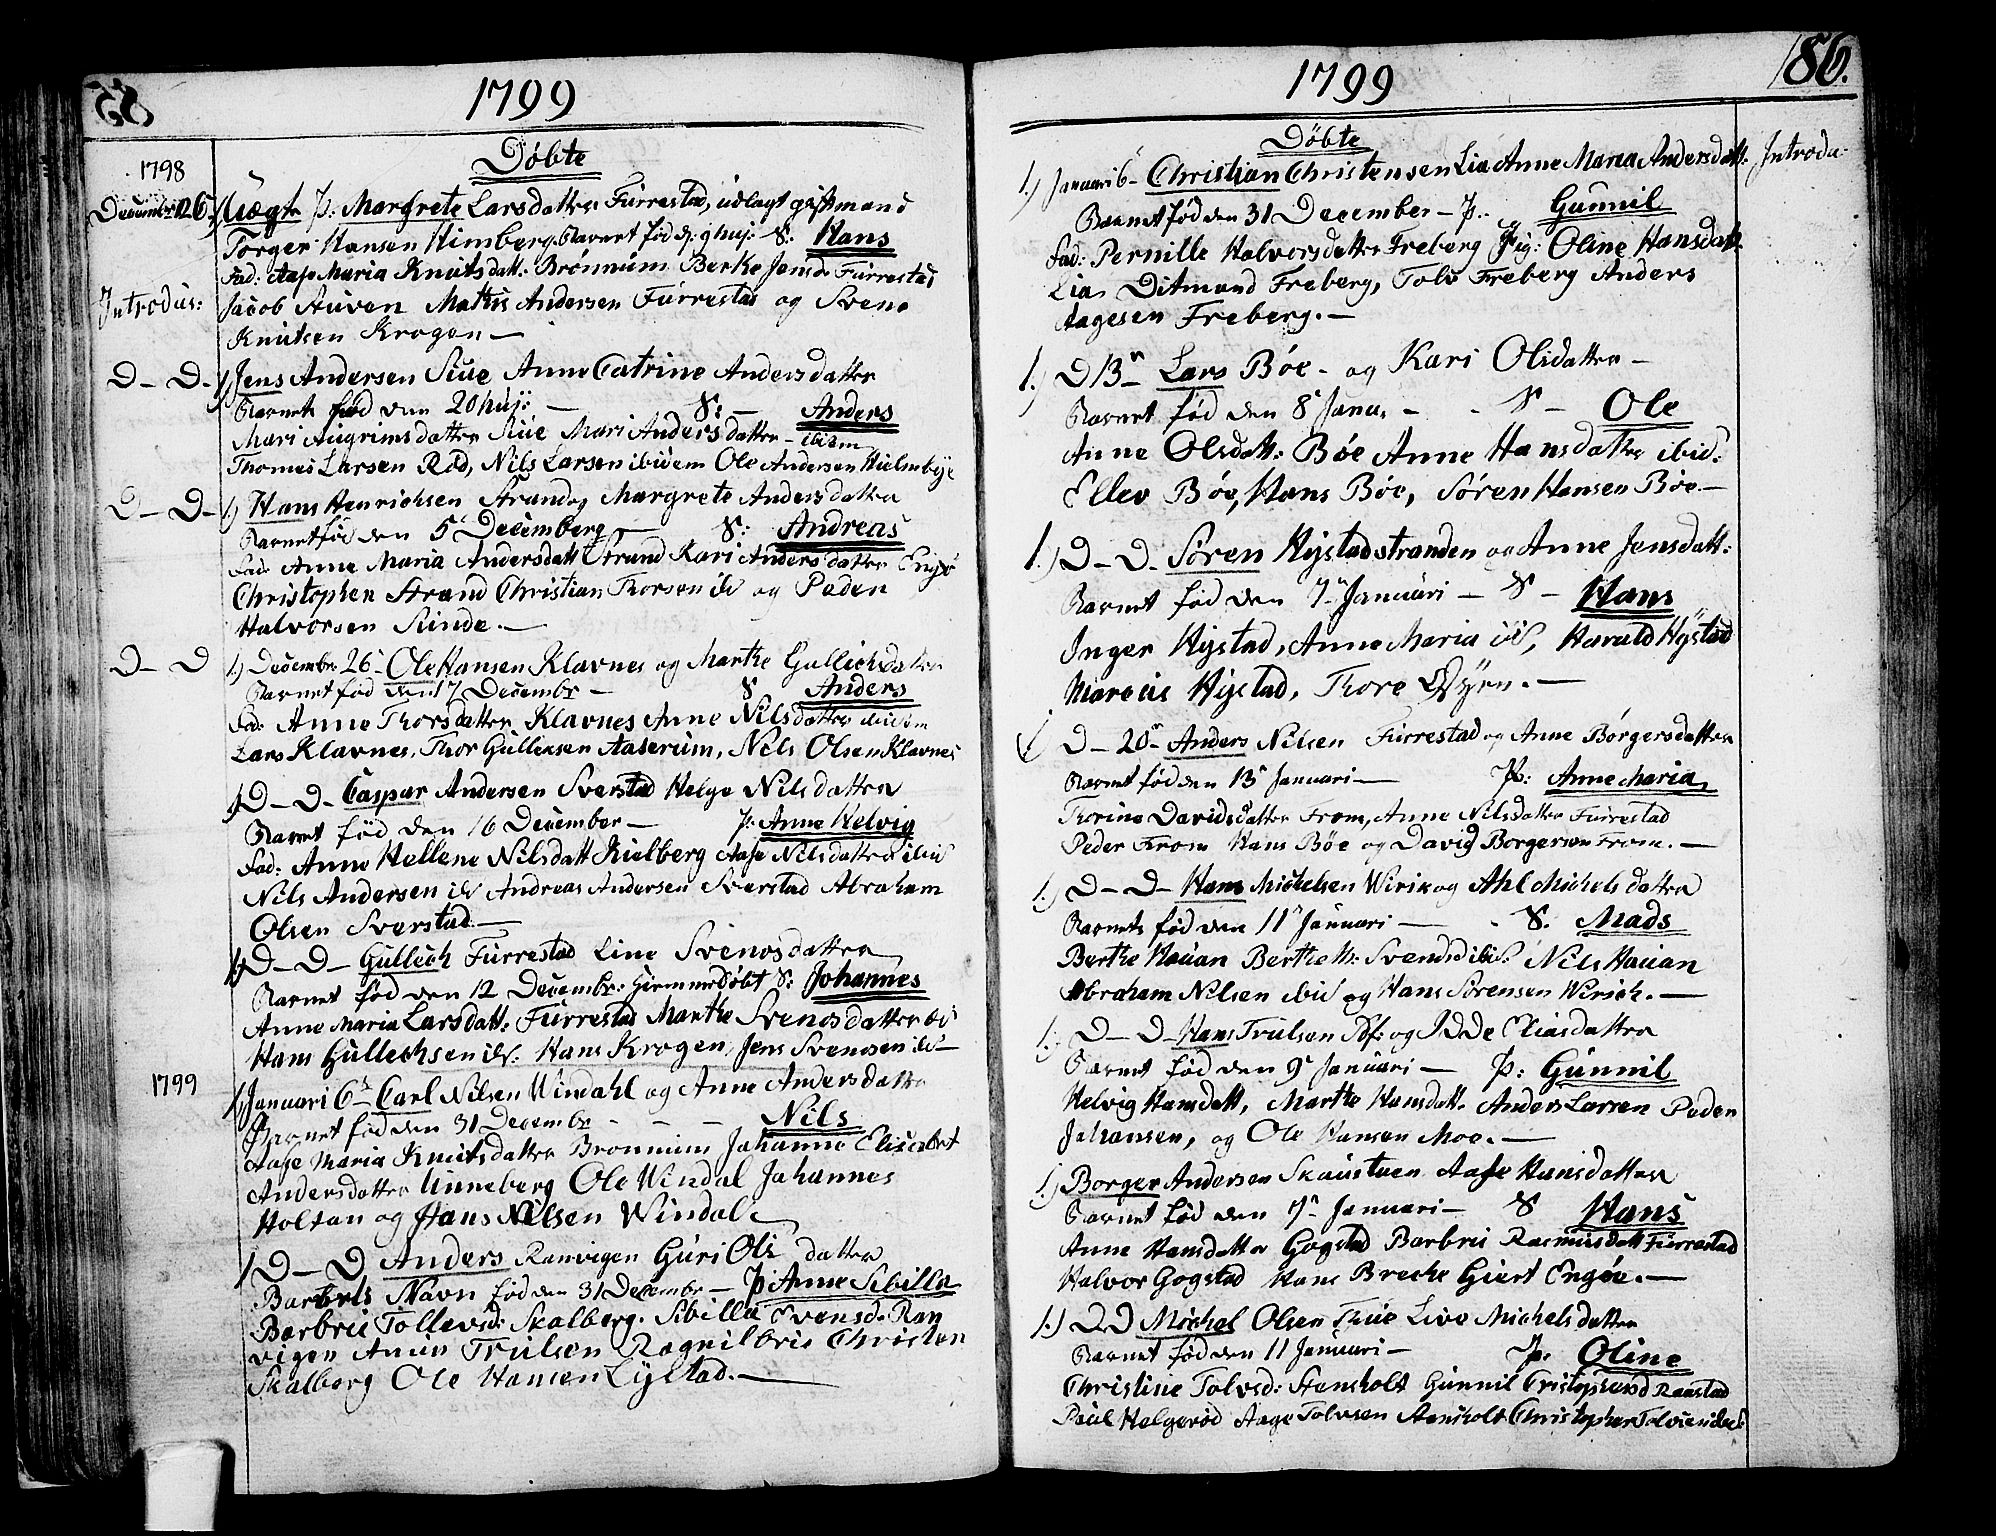 85
1799
Döbte
1798
Decembr 26
Uægte p: Margrete Larsdatter Fürrestad, udlagt giftmand
Torger Hansen Himberg Barnet fød d: 9 huj: S: Hans
Fad: Aase Maria Knutsdatt: Brönnum Berte Jensd: Fürrestad
Introdus:
Jacob Auven Mattis Andersen Fürrestad og Svend
Knutsen Krogen —
D — D — 1) Jens Andersen Siue Anne Catrine Andersdatter
Barnet fød den 20 huj: — S: — Anders
Mari Augrimsdatter Siue Mari Andersdatter — ibidem
Thomes Larsen Röd, Nils Larsen ibidem Ole Andersen Hielmbye
D — D — 1) Hans Henrichsen Strand og Margrete Andersdatter
Barnet fød den 5 Decemberg — S: Andreas
Fad: Anne Maria Andersdatt Strand Kari Andersdatter Engö
Christopher Strand Christian Thorsen ib og Peder
Halvorsen Sunde. —
D — D 1) Decembr 26 — Ole Hansen Klavnes og Marthe Gullichsdatter
Barnet fød den 17 Decembr — S Anders
Fad: Anne Thorsdatter Klavnes Anne Nilsdatter ibidem
Lars Klavnes, Thor Gullicksen Aaserum, Nils Olsen Klavnes
1) D — D — Caspar Andersen Sverstad Helge Nilsdatter
Barnet fød den 16 December — p: Anne Helvig
Fad: Anne Hellene Nilsdatt Kielberg Aase Nilsdatter ibid
Nils Andersen ib Andreas Andersen Sverstad Abraham
Olsen Sverstad —
1) D — D — Gullich Fürrestad Line Svendsdatter
Barnet fød den 12 Decembr: hiemmedöbt S: Johannes
Anne Maria Larsdatt: Fürrestad Marthe Svendsdatter ib
Hans Gullechsen ib. Hans Krogen, Jens Svendsen ib —
1799
1) Januari 6 — Carl Nilsen Windahl og Anne Andersdatter
Barnet fød den 31 Decembr — — — Nils
Aase Maria Knutsdatter Bronnum Johanne Elisabet
Andersdatter Unneberg Ole Windal Johannes
Holtan og Hans Nilsen Windal
1 D — D Anders Ranvigen Guri Ols datter
Barnets Navn fød den 31 Decembr — p: Anne Sibilla
Barbrü Tollevsd: Skalberg. Sibilla Evensd. Ran
vigen Amun Trulsen Ragnilbrü Christen
Skalberg Ole Hansen Lystad. —
1799
186.
Döbte
Introdu:
1.) Januari 6 — Christian Christensen Lia Anne Maria Andersdatt:
Barnet fød den 31 December — p: Gunnil
Fad: Pernille Halvorsdatter Freberg Pig: Oline Hansdatt
Lia, Ditmand Freberg, Tolv Freberg Anders
Aagesen Freberg. —
1.) D 13 — Lars Böe — og Kari Olsdatter —
Barnet fød den 8 Janu. — S — Ole
Anne Olsdatt: Böe Anne Hansdatter ibid:
Ellev Böe, Hans Böe, Sören Hansen Böe. —
1.) D — D — Sören Hystadstranden og Anne Jensdatt:
Barnet fød den 7 Januari — S — Hans
Inger Hystad, Anne Maria ib, Harald Hystad
Marcus Hystad, Thore Öyen. —
1) D — 20 — Anders Nilsen Fürrestad og Anne Börgersdatter
Barnet fød den 13 Januari — P: Anne Maria
Thorine Davidsdatter From, Anne Nilsdatter Fürrestad
Peder From Hans Böe og David Borgersen From. —
1.) D — D — Hans Mickelsen Wirik og Ahl Michelsdatter
Barnets fød den 11 Januari — S. Mads
Berthe Hauan Berthe Svendsd ibid. Nils Hauan
Abraham Nilsen ibid og Hans Sörensen Wirich. —
1.) D — D — Hans Trulsen og Idde Eliasdatter
Barnet fød den 9 Januari — P: Gunnil
Helvig Hansdatt, Marthe Hansdatt. Anders Larsen Peder
Johansen, og Ole Hansen Moe. —
1.) Borger Andersen Skaustuen Aase Hansdatter
Barnet fød den 7 Januari — S Hans
Anne Hansdatter Gogstad Barbrü Rasmusdatt Fürrestad
Halvor Gogstad Hans Brecke Giert Engöe. —
1.) D D Michel Olsen Thue Live Michelsdatter
Barnet fød den 11 Januari — P: Oline
Christine Tolvsd: Stensholt Gunnil Cristophersd Raastad
Paul Helgeröd Aage Tolvsen Stensholt Christopher Tolvsen ibid: